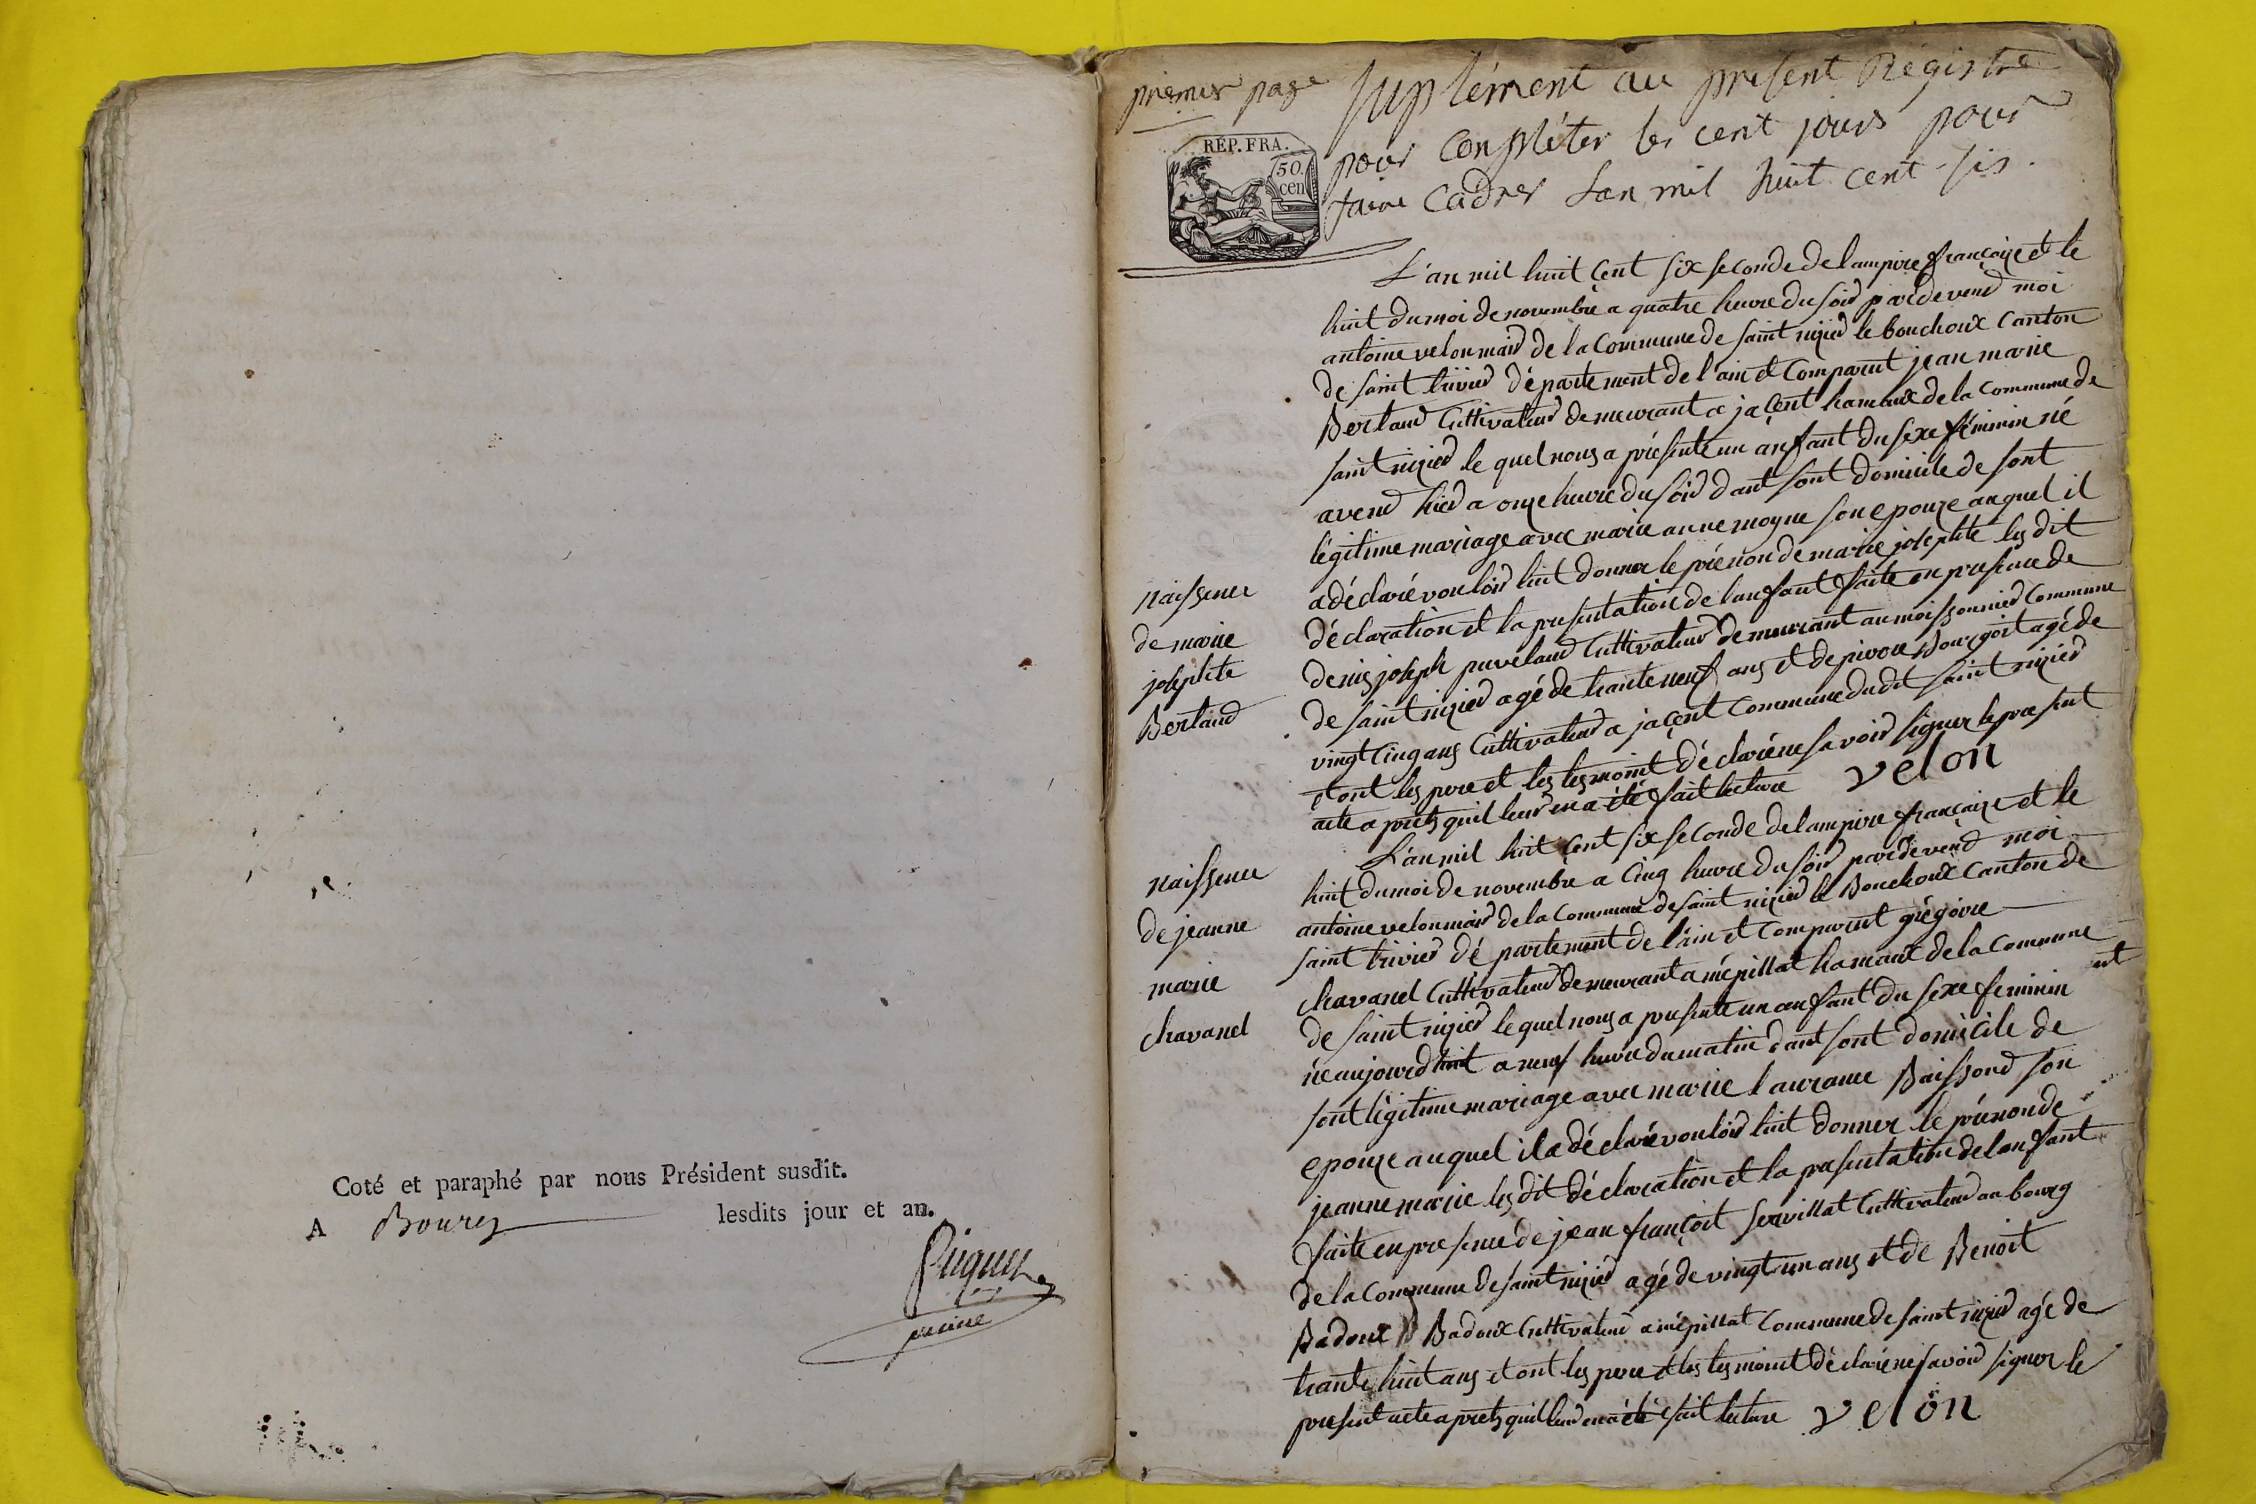 Coté et paraphé par nous Président susdit.
A Bourg lesdits jour et an.
premier page
Suplément au present Régistre
pour compléter les cent jours pour
faire cadrer Lan mil huit cent six.
RÉP. FRA.
50.
cen
L'an mil huit cent six seconde de lampire françaize et le
huit du moi de novembre a quatre heure du soir pardevend moi
antoine velon maird de la Commune de saint nizied le bouchoux Canton
de saint trivied département de l'ain et Comparut jean marie
Berland Cultivateur demeurant a jaçent hamaux de la Commune de
saint nizied le quel nous a présente un anfant du sexe féminin né
avend hied a onze heure du soir dant sont domicile de sont
légitime mariage avec marie anne moyne son epouze auquel il
a déclaré vouloir luit donner le prénon de marie josephte les dit
déclaration et la presentation de lanfant faite en presence de
denis joseph puveland Cultivateur demeurant au moissonnied Commune
de saint nizied agé de trante neuf ans et de pierre Bourgoit agé de
vingt Cinq ans Cultivateur a jaçent Commune dudit saint nizied
et ont les pere et les tesmoint déclaré ne savoir signer le present
acte aprets quil leur en a été fait lecture velon
naissence
de marie
josephte
Berland
L'an mil huit cent six seconde de lampire françaize et le
huit du moi de novembre a Cinq heure du soir pardevend moi
antoine velon maird de la Commune de saint nizied le Bouchoux Canton de
saint trivied département de l'ain et Comparut grégoire
chavanel Cultivateur demeurant a mépillat hamaux de la Commune
de saint nizied le quel nous a presente un anfant du sexe feminin
né aujourd huit a neuf heure du matin dant sont domicile de
sont légitime mariage avec marie laurance Baissond son
epouze auquel il a déclaré vouloir luit donner le prénon de
jeanne marie les dit déclaration et la presentation de lanfant
faite en presence de jean françoit servillat Cultivateur au bourg
de la Commune de saint nizied agé de vingt un ans et de Benoit
Badoux Badoux Cultivateur a mépillat Commune de saint nizied agé de
trante huit ans et ont les pere et les tesmoint déclaré ne savoir signer le
present acte aprets quil leur en a été fait lecture velon
naissence
de jeanne
marie
chavanel